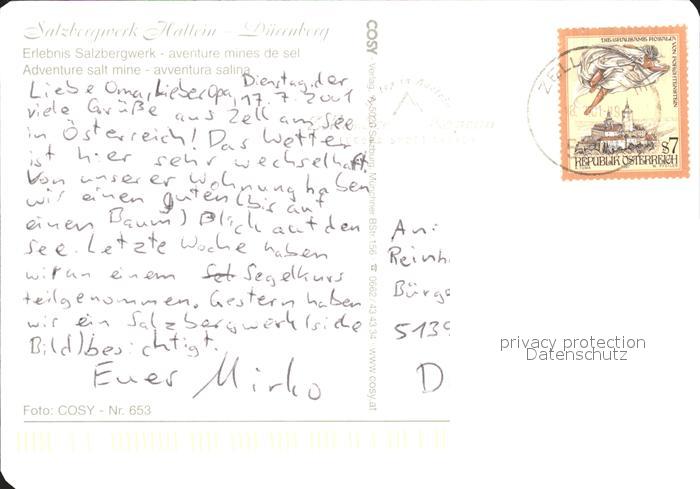 Salzbergwerk Hallein - Dürrnberg
Erlebnis Salzbergwerk - aventure mines de sel
Adventure salt mine - avventura salina
Dienstag, der
17.7.2001
Liebe Oma, Lieber Opa,
viele Grüße aus Zell am See
in Österreich! Das Wetter
ist hier sehr wechselhaft.
Von unserer Wohnung haben
wir einen guten (bis auf
einen Baum) Blick auf den
See. Letzte Woche haben
wir an einem Segelkurs
teilgenommen. Gestern haben
wir ein Salzbergwerk (siehe
Bild) besichtigt.
Euer Mirko
Foto: COSY - Nr. 653
COSY Verlag, Salzburg, Münchner BStr. 156 ☎ 0662/43 43 34 www.cosy.at
An:
Reinh
Bürge
5139
D
ZELL
DIE GRAUSAME ROSALIA VON FORCHTENSTEIN
S7
REPUBLIK ÖSTERREICH
privacy protection
Datenschutz